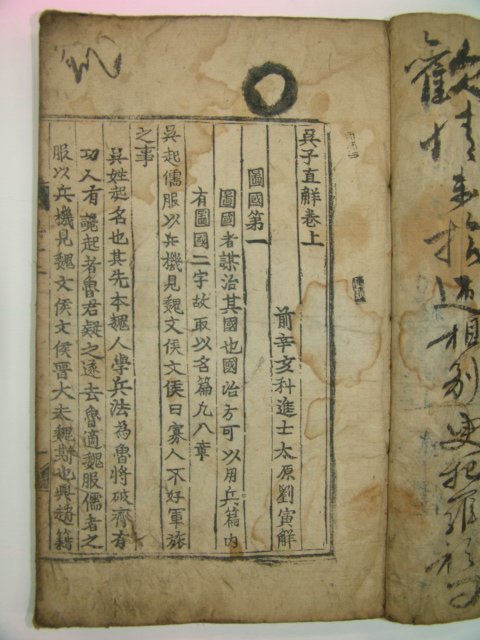 吳子直解卷上
前辛亥科進士太原劉寅解
圖國第一
圖國者謀治其國也國治方可以用兵篇內
有圖國二字故取以名篇凡八章
吳起儒服以兵機見魏文侯文侯曰寡人不好軍旅
之事
吳姓起名也其先本魏人學兵法為魯將破齊有
功人有譖起者魯君疑之遂去魯適魏服儒者之
服以兵機見魏文侯文侯晉大夫魏斯也與趙籍
歡情未洽
相別更